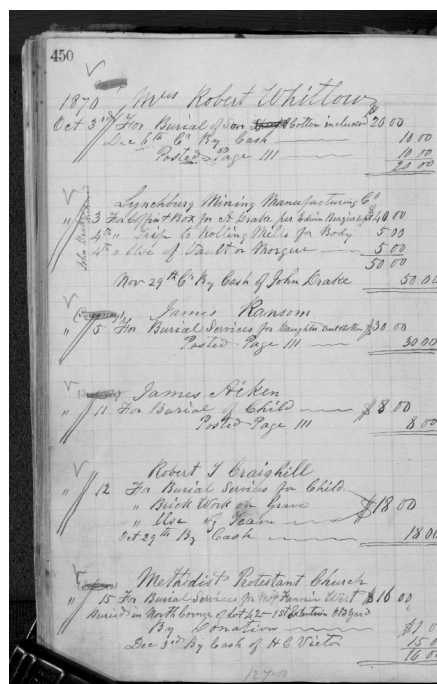 450
1870 Mrs Robert Whitlow
Oct 3rd For Burial of Son Coffin included $20 00
Dec 6th Cr By Cash 10 00
Posted Page 111 10 00
20 00
Lynchburg Mining Manufacturing Co
" 3 For Coffin & Box for A Drake per Edwin $40 00
4th " Trip to Rolling Mills for Body 5 00
4th " Use of Vault or Morgue 5 00
50 00
Nov 29th Cr By Cash of John Drake 50 00
James Ransom
" 5 For Burial Services for Daughter $30 00
Posted Page 111 30 00
James Aiken
" 11 For Burial of Child $8 00
Posted Page 111 8 00
Robert T Craighill
" 12 For Burial Services for Child
" Brick Work on Grave $18 00
" Use of Team
Oct 29th By Cash 18 00
Methodist Protestant Church
" 15 For Burial Services for Miss Fannie West $16 00
Buried in North Corner of Lot 42 - 1st Extention
By Donation $1 0
Dec 3rd By Cash of H C Victor 15 0
16 0